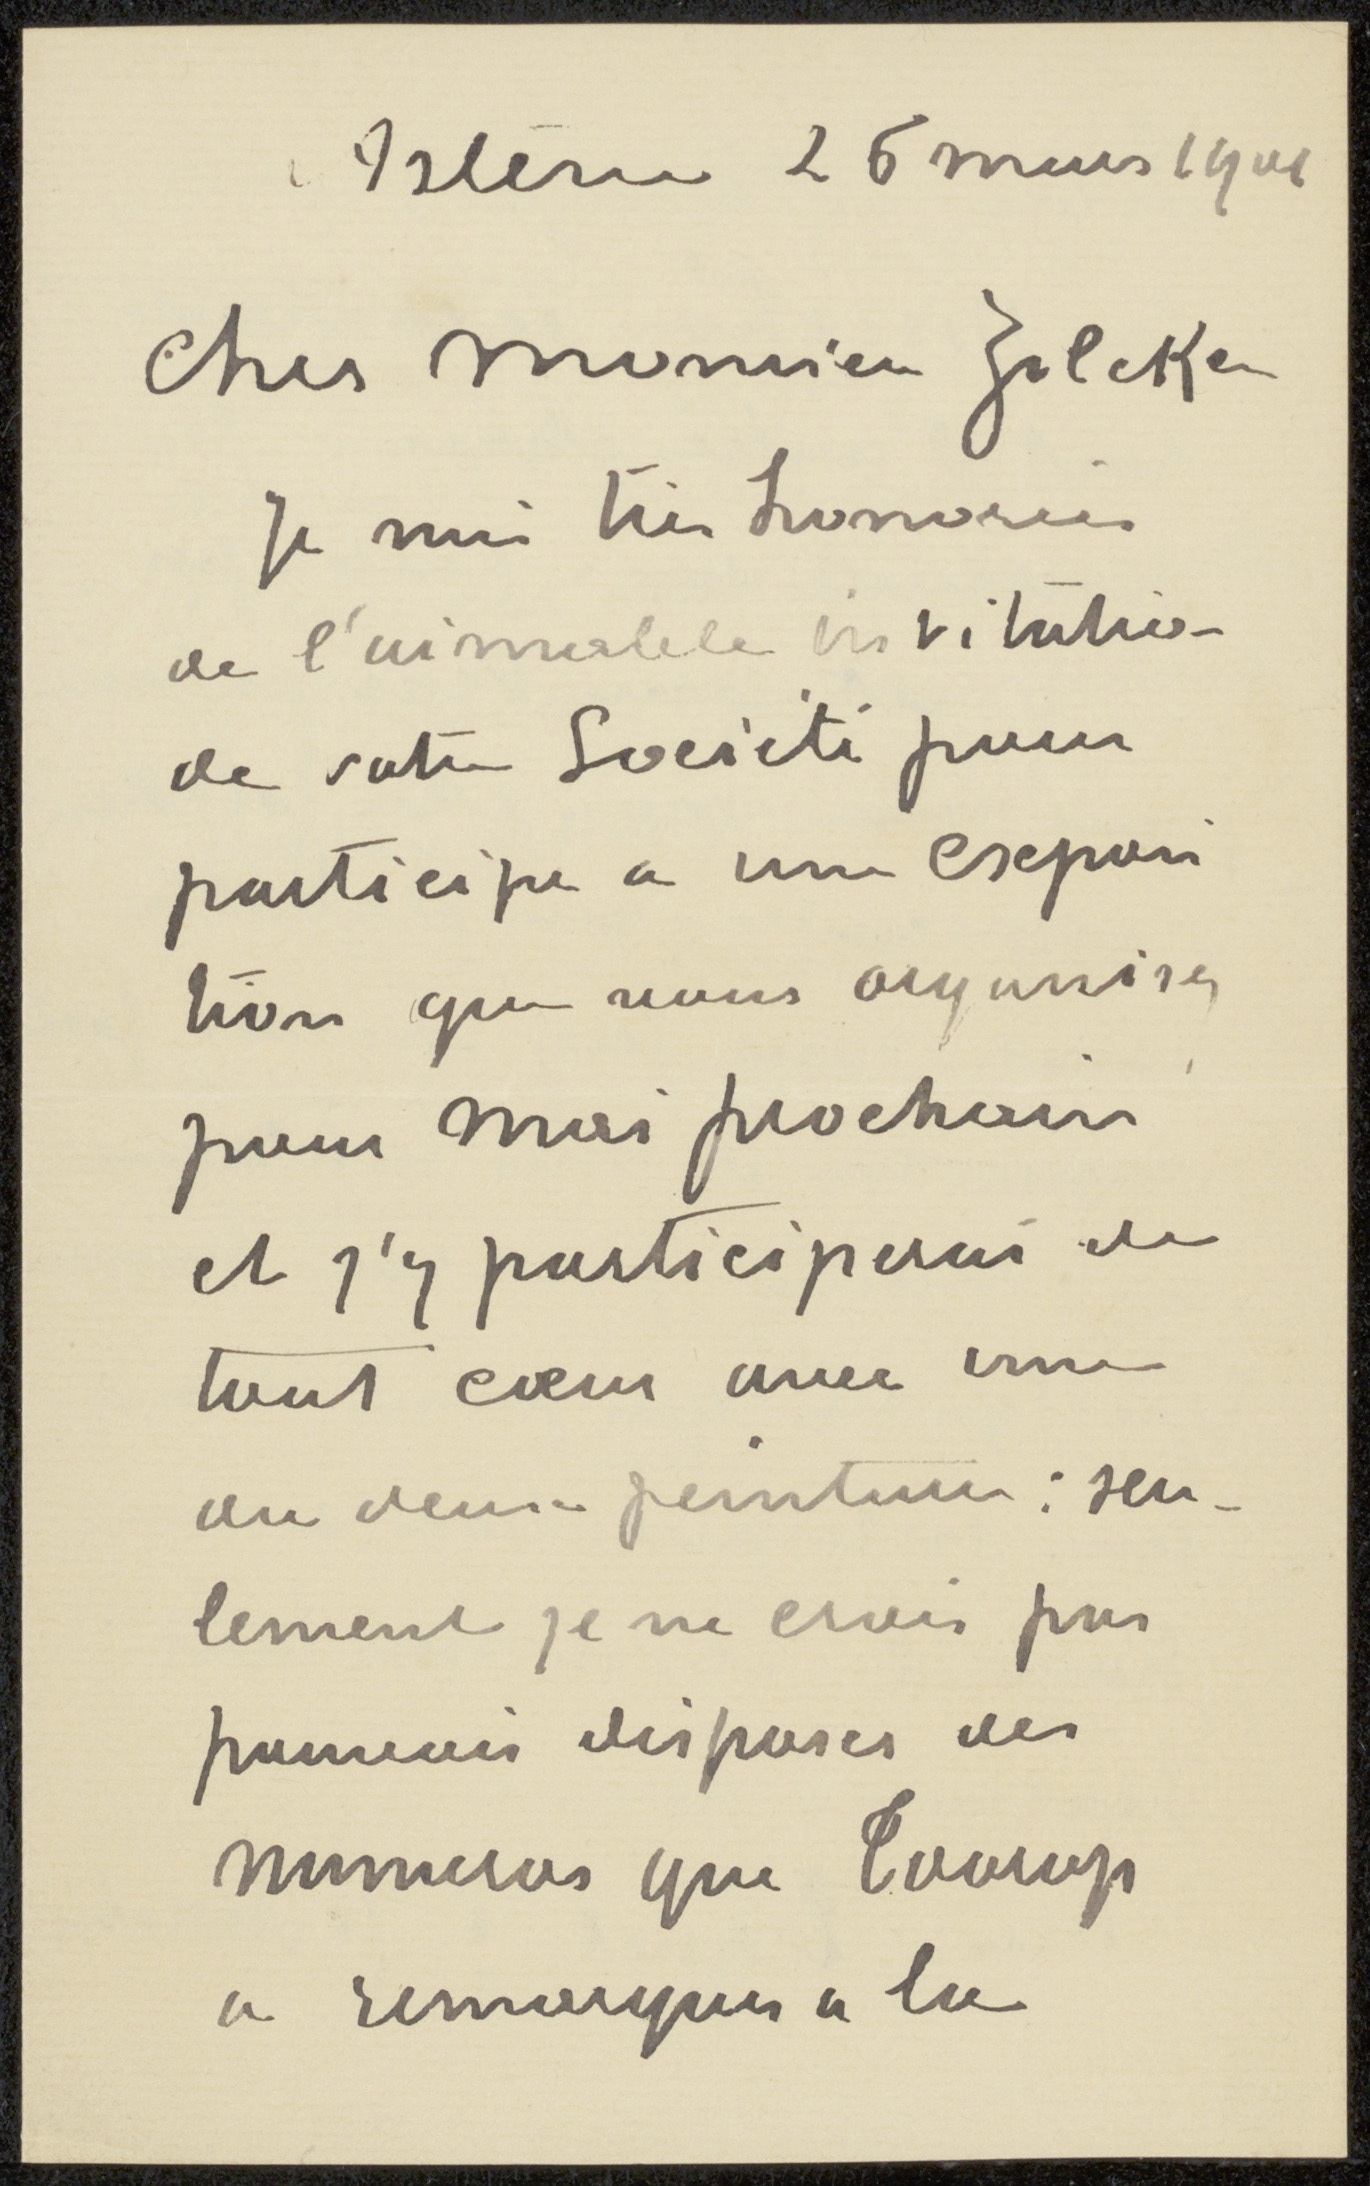 Astene 26 mars 1901
Cher monsieur Zilcken
Je suis très honoré
de l'aimable invitation
de votre Société pour
participer a une exposi
tion que vous organisez
pour mai prochain
et j'y participerai de
tout cœur avec une
ou deux peintures : seu-
lement je ne crois pas
pouvoir disposer des
numeros que Toorop
a remarques a la